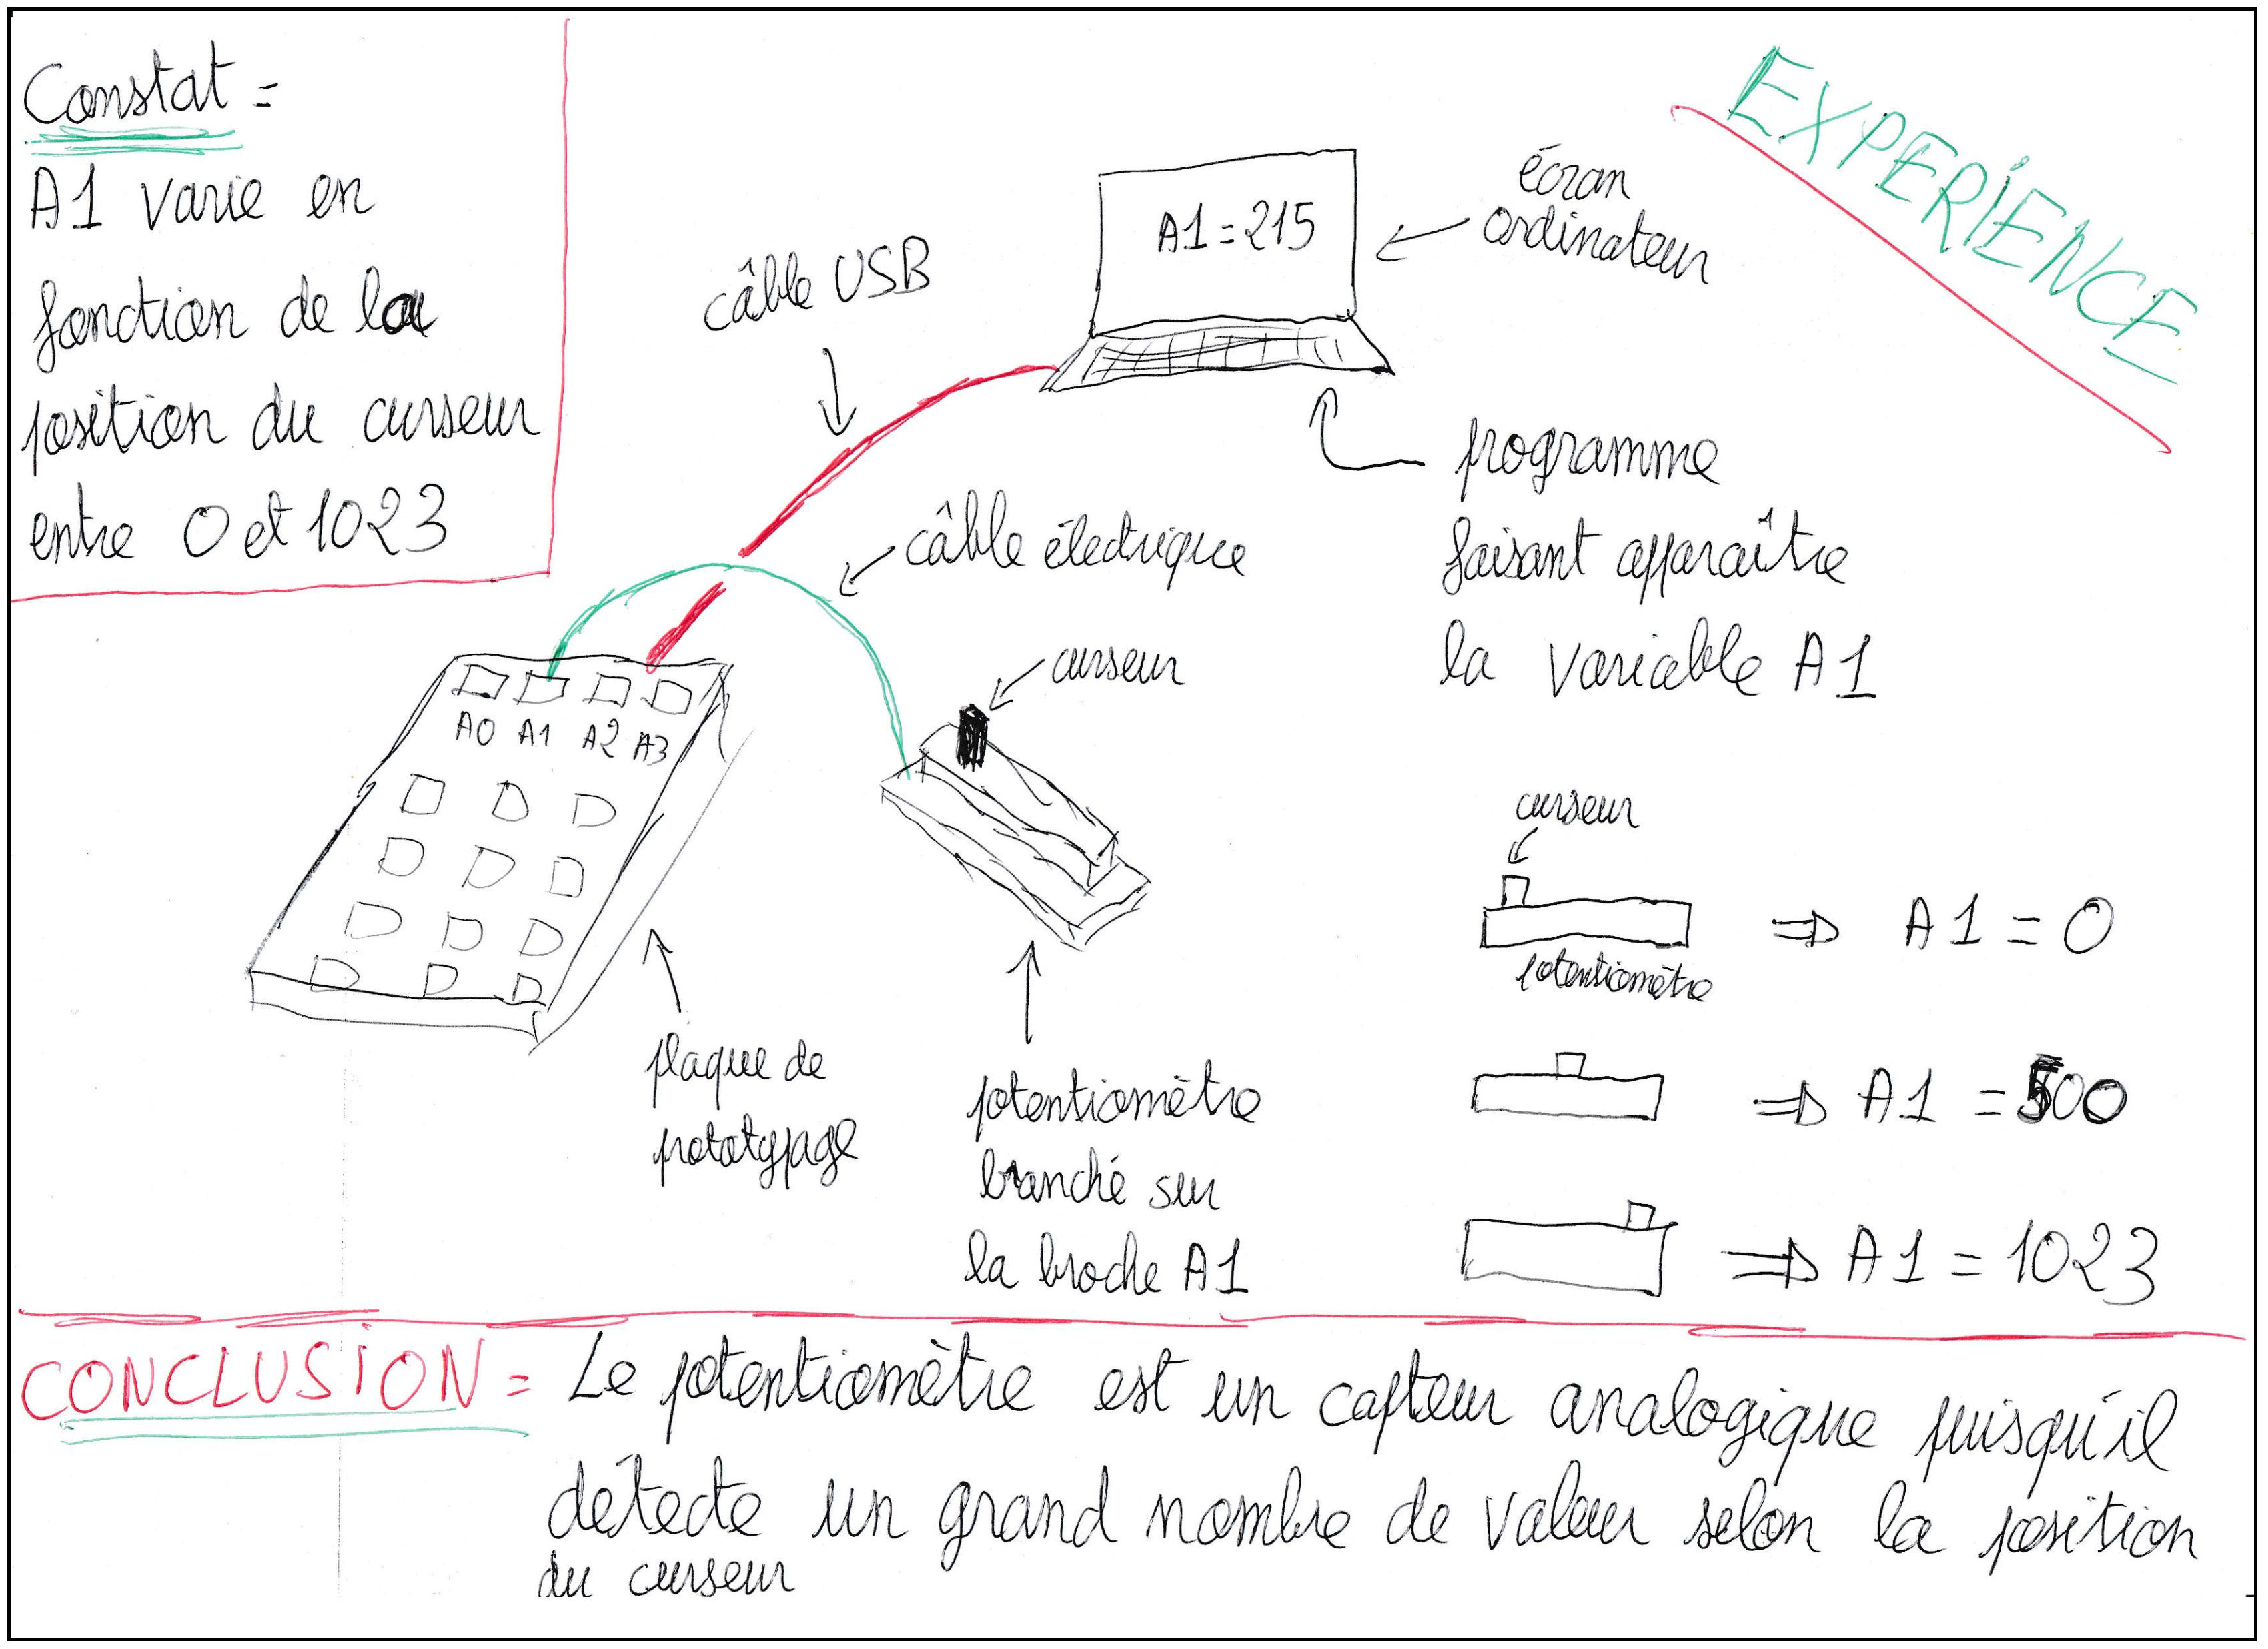 Constat =
A1 varie en
fonction de la
position du curseur
entre 0 et 1023
EXPERIENCE
câble USB
A1 = 215
écran
ordinateur
programme
faisant apparaître
la variable A1
câble électrique
curseur
A0 A1 A2 A3
plaque de
prototypage
potentiomètre
branché sur
la broche A1
curseur
potentiomètre
⇒ A1 = 0
⇒ A1 = 500
⇒ A1 = 1023
CONCLUSION = Le potentiomètre est un capteur analogique puisqu'il
détecte un grand nombre de valeur selon la position
du curseur